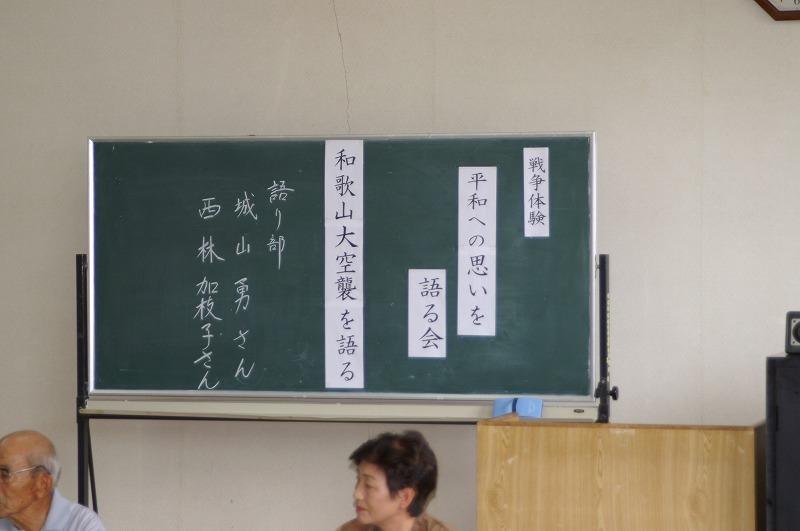 戦争体験
平和への思いを
語る会
和歌山大空襲を語る
語り部
城山勇さん
西林加枝子さん